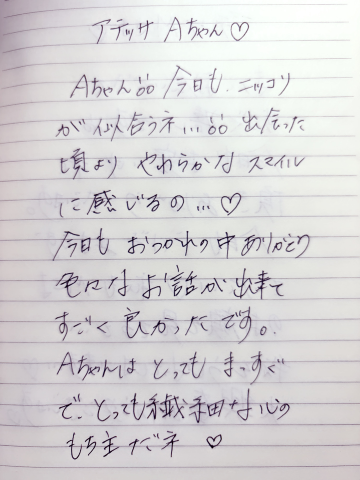 アテッサ Aちゃん♡
Aちゃん!! 今日も、ニッコリ
が似合うネ...!! 出会った
頃より やわらかな スマイル
に感じるの...♡
今日も おつかれの中 ありがとう
色々な お話が 出来て
すごく 良かったです。
Aちゃんは とっても まっすぐ
で、とっても繊細な心の
もち主だネ ♡